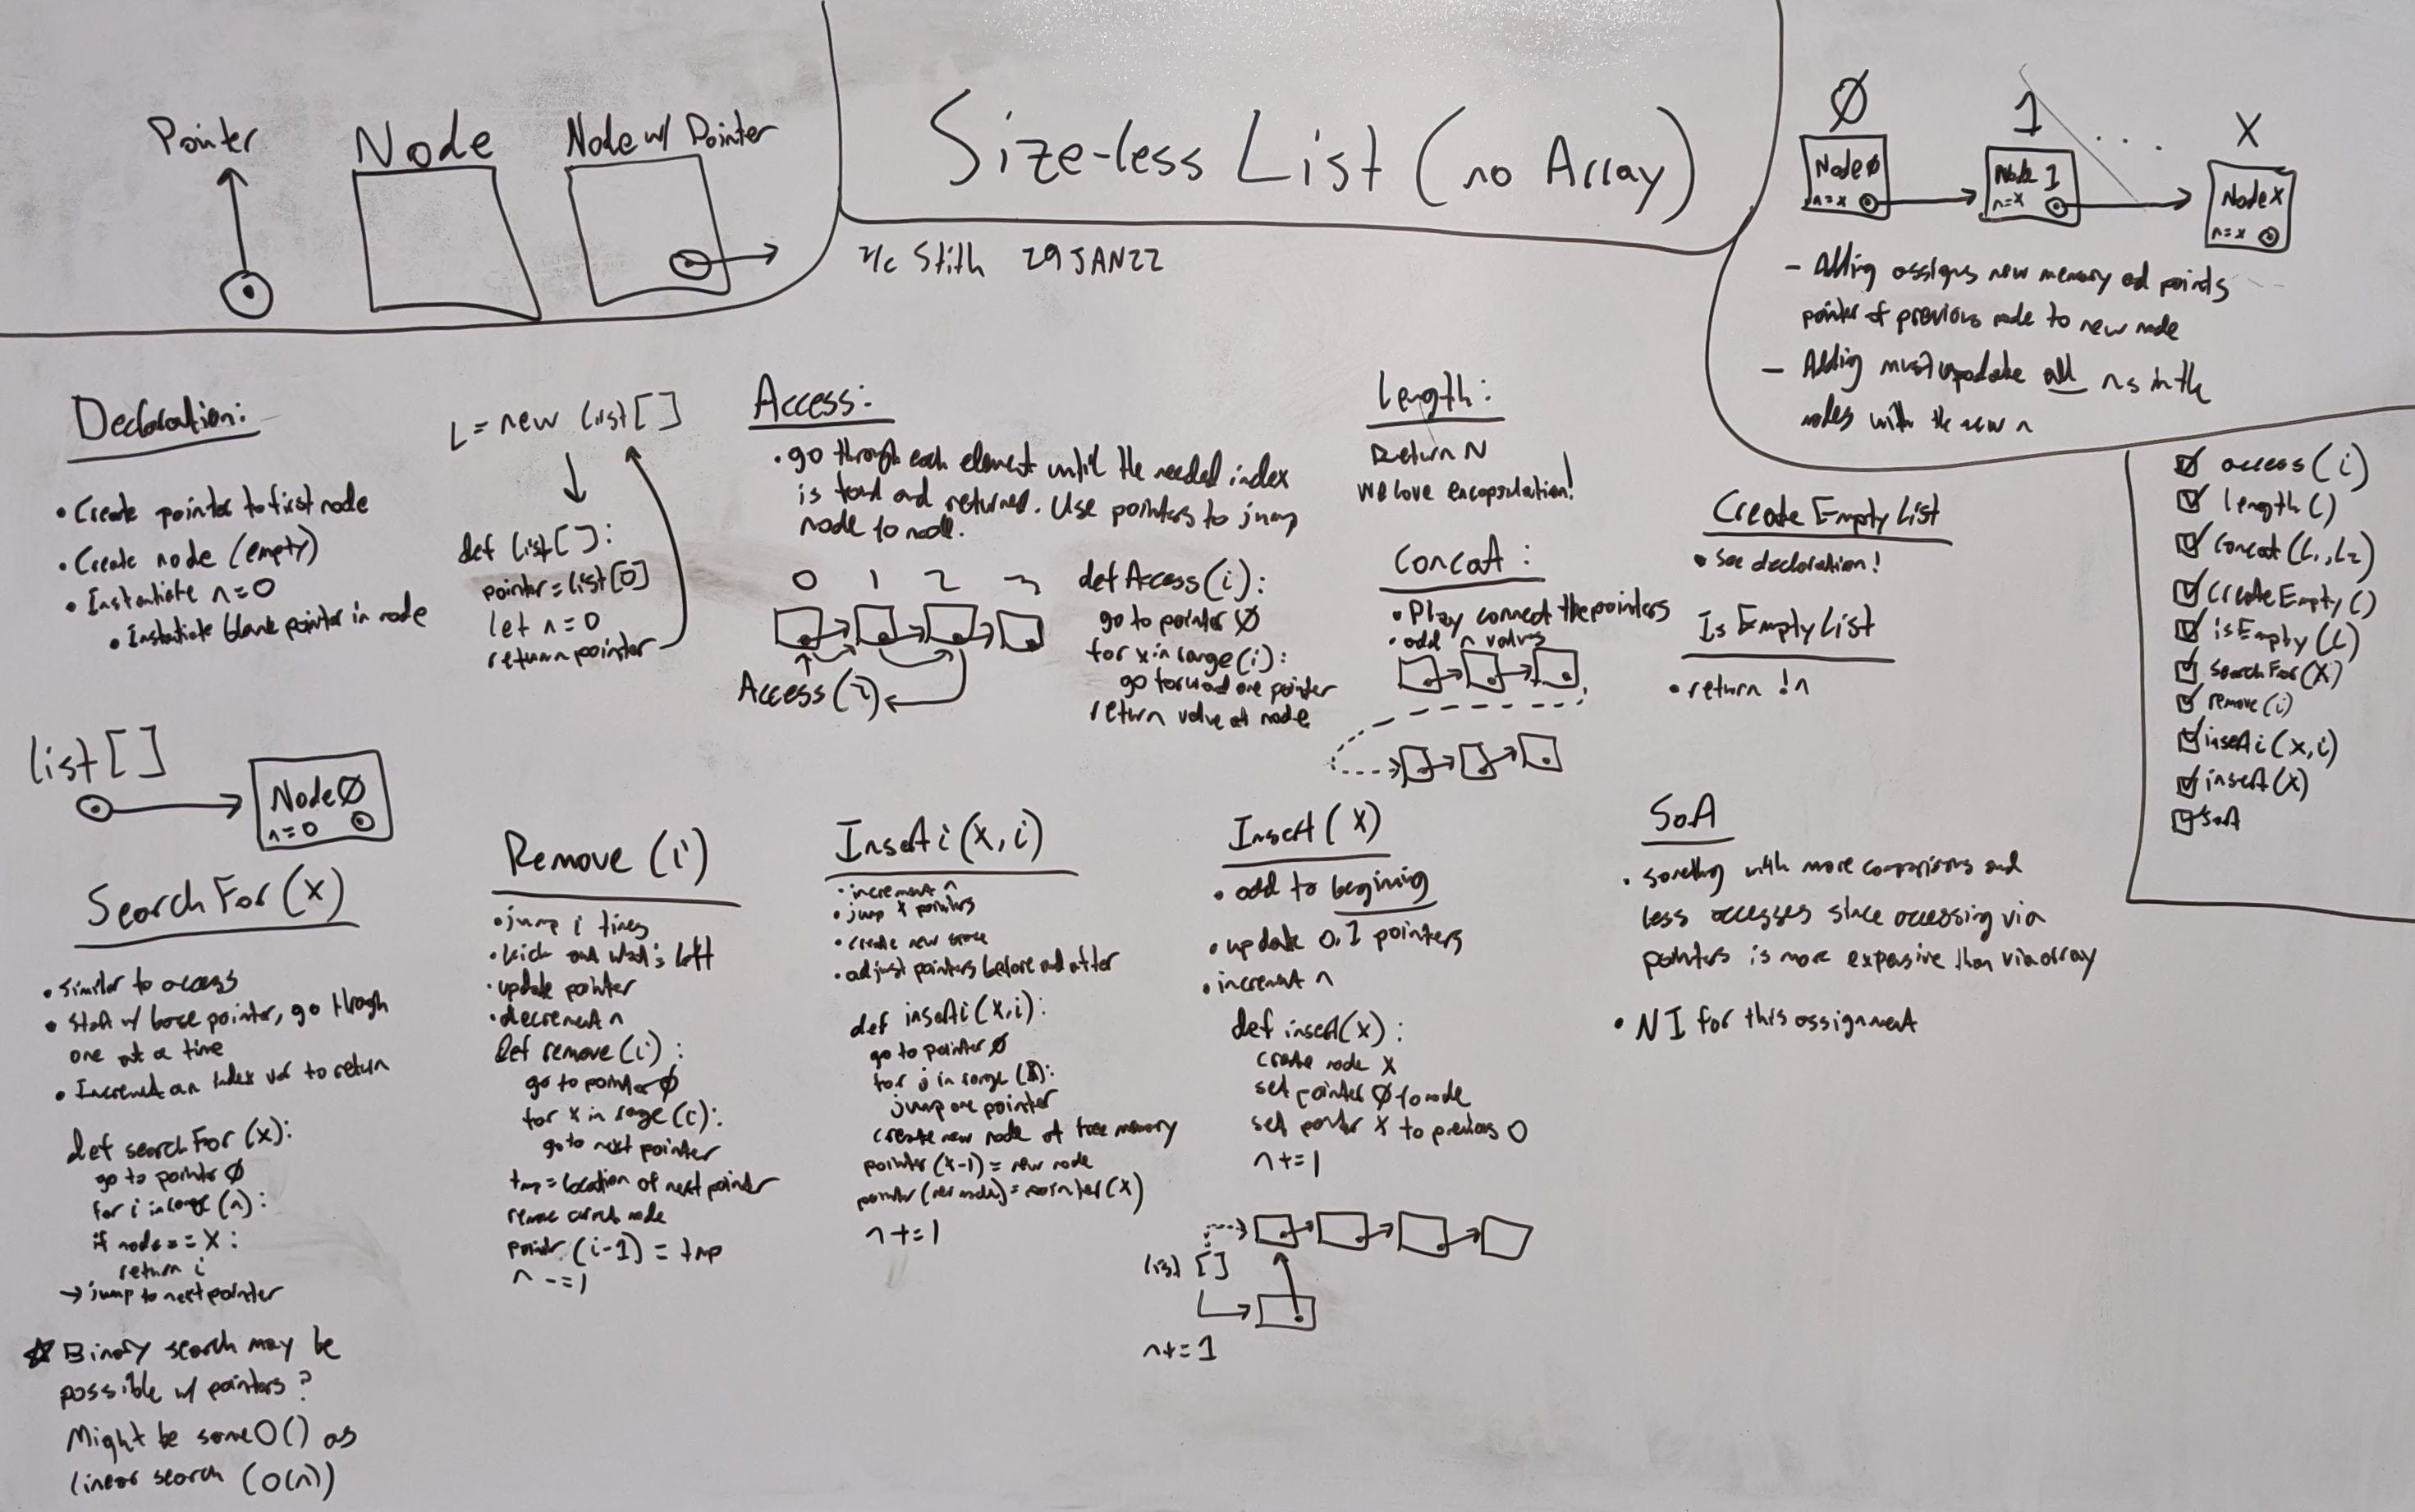 Pointer
Node
Node w/ Pointer
Size-less List (no Array)
2/c Stith 29JAN22
Ø
1
. . .
X
NodeØ
n=x
Node 1
n=x
NodeX
n=x
- Adding assigns new memory ad points
pointer of previous node to new node
- Adding must update all ns in the
nodes with the new n
Declaration:
• Create pointer to first node
• Create node (empty)
• Instantiate n=0
• Instantiate blank pointer in node
L = new list[]
def list[]:
pointer = list[0]
let n=0
return pointer
list[]
NodeØ
n=0
Access:
• go through each element until the needed index
is found and returned. Use pointers to jump
node to node.
0 1 2 3
Access(2)
def Access(i):
go to pointer Ø
for x in range(i):
go forward one pointer
return value at node
Length:
Return N
We love encapsulation!
Concat:
• Play connect the pointers
• add n values
Create Empty List
• See declaration!
Is Empty List
• return !n
access(i)
length()
concat(L1,L2)
createEmpty()
isEmpty(L)
searchFor(X)
remove(i)
inserti(x,i)
insert(x)
sort
SearchFor(X)
• Similar to access
• Start w/ base pointer, go through
one at a time
• Increment an index var to return
def searchFor(x):
go to pointer Ø
for i in range(n):
if node == X:
return i
→ jump to next pointer
☆ Binary search may be
possible w/ pointers?
Might be same O() as
linear search (O(n))
Remove(i)
• jump i times
• kick out what's left
• update pointer
• decrement n
def remove(i):
go to pointer Ø
for x in range(i):
go to next pointer
tmp = location of next pointer
remove current node
pointer(i-1) = tmp
n -= 1
Inserti(x,i)
• increment n
• jump x pointers
• create new space
• adjust pointers before and after
def inserti(x,i):
go to pointer Ø
for j in range():
jump one pointer
create new node at free memory
pointer(x-1) = new node
pointer(new node) = pointer(x)
n += 1
Insert(X)
• add to begining
• update 0,1 pointers
• increment n
def insert(x):
create node X
set pointer Ø to node
set pointer X to previous 0
n += 1
list []
n += 1
Sort
• something with more comparisons and
less accesses since accessing via
pointers is more expensive than via array
• NI for this assignment